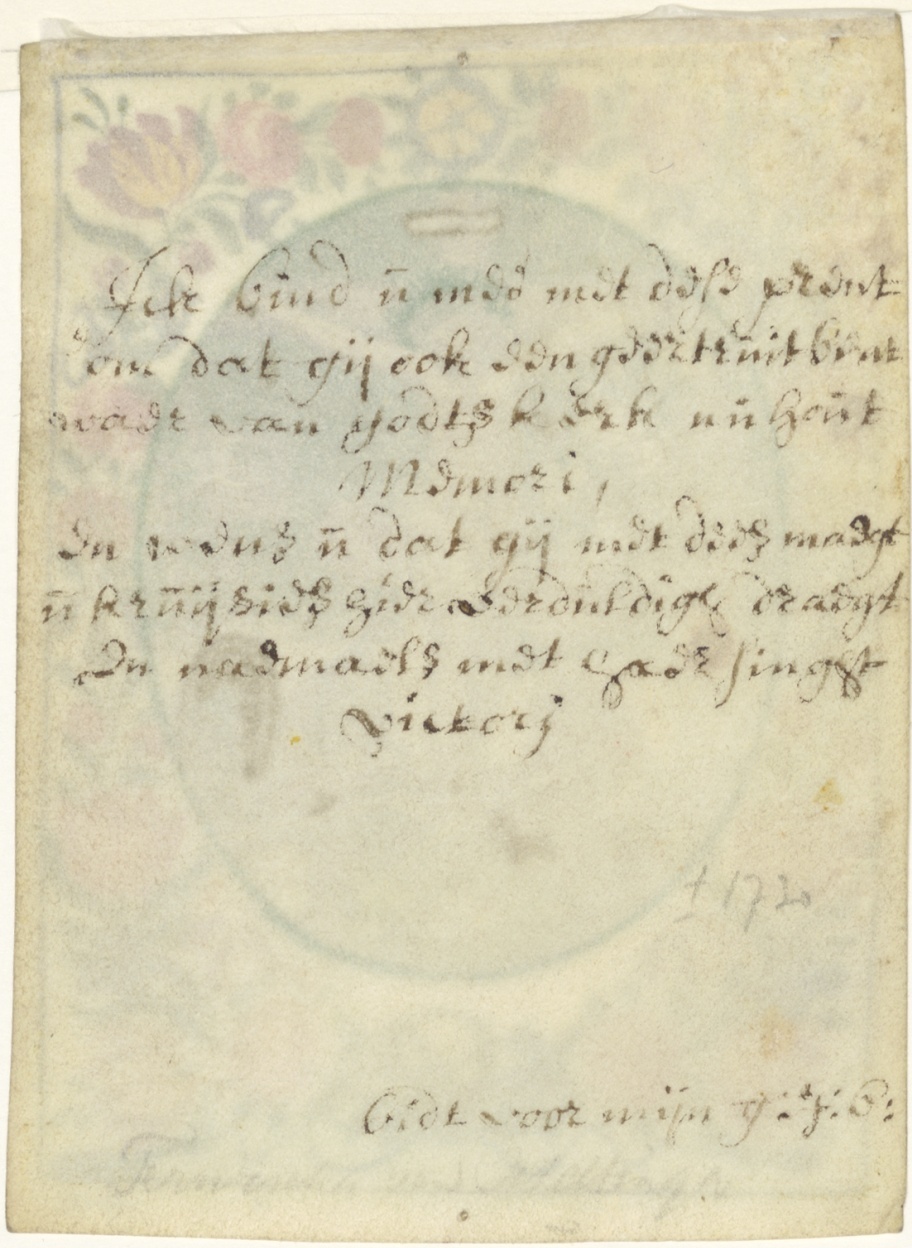 Ick bind ü med met dese prent
om dat gij ook een geertruit bent
waer van godts kerk nü hout
Memori,
En wens ü dat gij met dees maegt
ü krüijsies hier verdüldigh draegt
En naemaels met haer singt
victorij
± 1720
bidt voor mijn g: